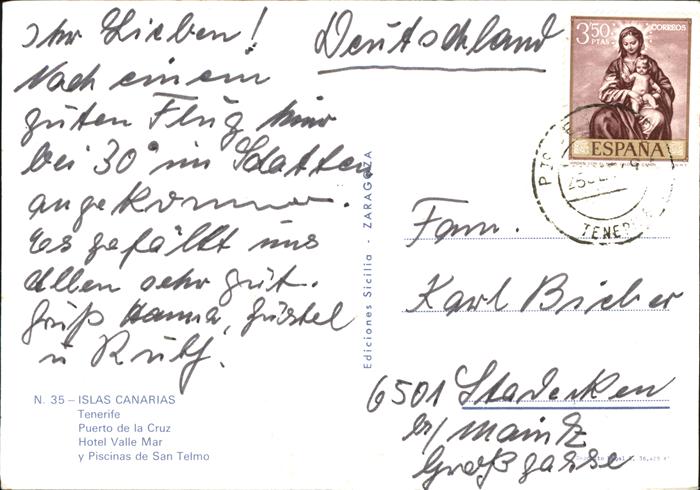 Ihr Lieben!
Nach einem
guten Flug hier
bei 30° im Schatten
angekommen.
Es gefällt uns
allen sehr gut.
Gruß Hanna, Gustel
u Ruth.
N. 35 – ISLAS CANARIAS
Tenerife
Puerto de la Cruz
Hotel Valle Mar
y Piscinas de San Telmo
Ediciones Sicilia - ZARAGOZA
Deutschland
3,50 PTAS CORREOS
ESPAÑA
TENERIFE
Fam.
Karl Bieber
6501 Stadecken
b/ Mainz
Großgasse